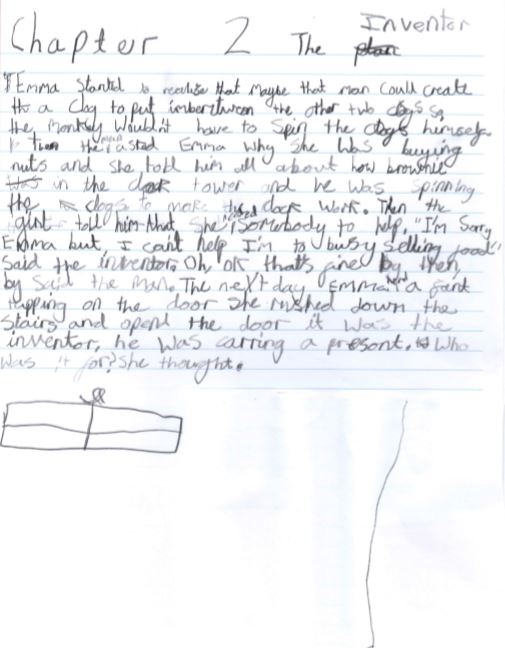 Chapter 2 The Inventor
Emma started to realise that maybe that man could create
a Clog to put imbertween the other two clogs so
the monkey wouldn't have to spin the clogs himself.
Then the man asted Emma why she was buying
nuts and she told him all about how brownie
was in the clok tower and he was spinning
the clogs to make the clock work. Then the
girl told him that she need somebody to help. "I'm sorry
Emma but I can't help I'm to busy selling food"
said the inventor. Oh, ok that's fine by then,
by said the man. The next day Emma had a faint
tapping on the door she rushed down the
stairs and opend the door it was the
inventor, he was carring a present. Who
was it for? she thought.